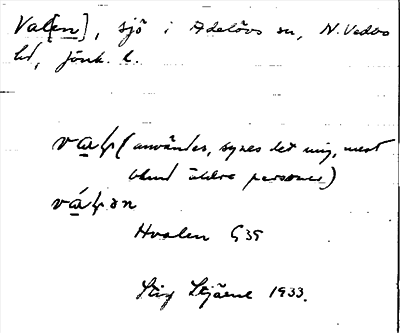 Val[en], sjö i Adelövs sn, N. Vedbo
hd, Jönk. l.
va̲ɫ (användes, synes det mig, mest
bland äldre personer)
vá̲ɫən
Hvalen G39
Stig
1933.